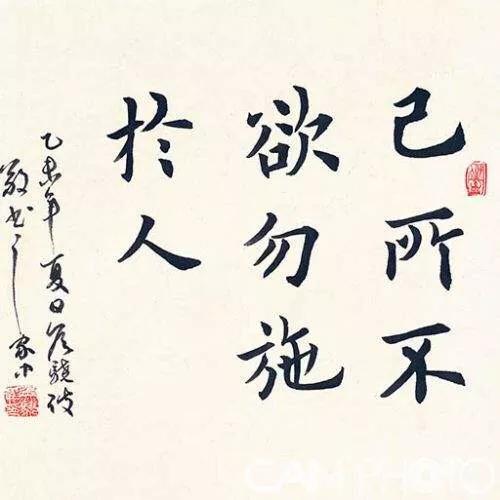 己所不
欲勿施
於人
乙未年夏日
CAMPHOTO